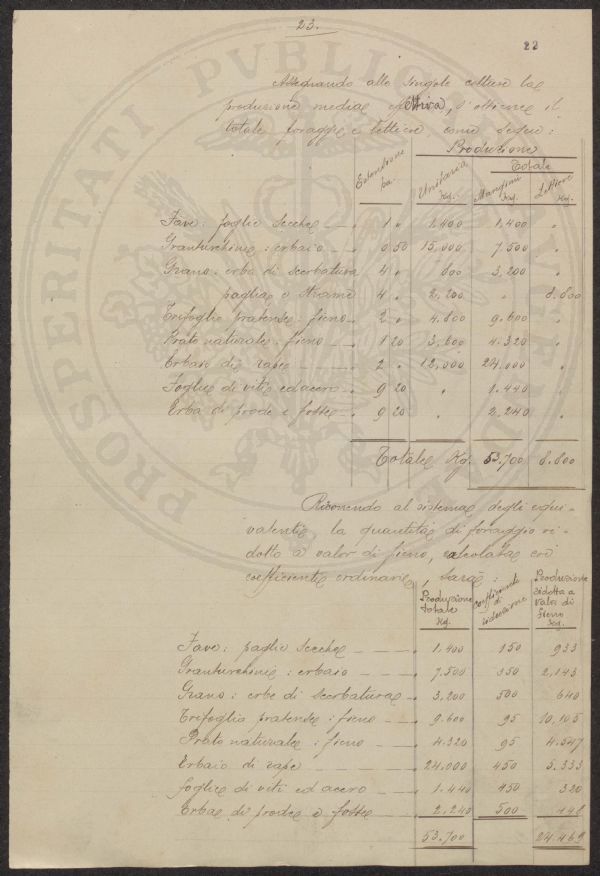 23.
22
Assegnando alle singole colture la
produzione media effettiva, s'ottiene il
totale foraggi e lettiere, come segue:
Produzione
Estensione ha. Unitaria Kg. Totale
Mangimi Kg. Lettiere Kg.
Fave: foglie secche 1 " 1,400 1,400 "
Granturchino: erbaio 0 50 15,000 7,500 "
Grano: erba di scerbatura 4 " 800 3,200 "
paglia o strame 4 " 2,200 " 8.800
Trifoglio pratense: fieno 2 " 4.800 9.600 "
Prato naturale: fieno 1 20 3,600 4.320 "
Erbaio di rape 2 " 12,000 24.000 "
Foglie di viti ed acero 9 20 " 1.440 "
Erba di prode e fosse 9 20 " 2.240 "
Totale Kg. 53.700 8.800
Ricorrendo al sistema degli equi-
valenti la quantità di foraggio ri-
dotto a valor di fieno, calcolata coi
coefficienti ordinari, sarà:
Produzione totale Kg. Coefficiente di riduzione Produzione ridotta a valor di fieno Kg.
Fave: paglie secche 1.400 150 933
Granturchino: erbaio 7.500 350 2,143
Grano: erbe di scerbatura 3,200 500 640
Trifoglio pratense: fieno 9.600 95 10,105
Prato naturale: fieno 4.320 95 4.547
Erbaio di rape 24.000 450 5.333
foglie di viti ed acero 1.440 450 320
Erba di prode e fosse 2.240 500 448
53.700 24.469
PROSPERITATI PUBLICAE AUGENDAE